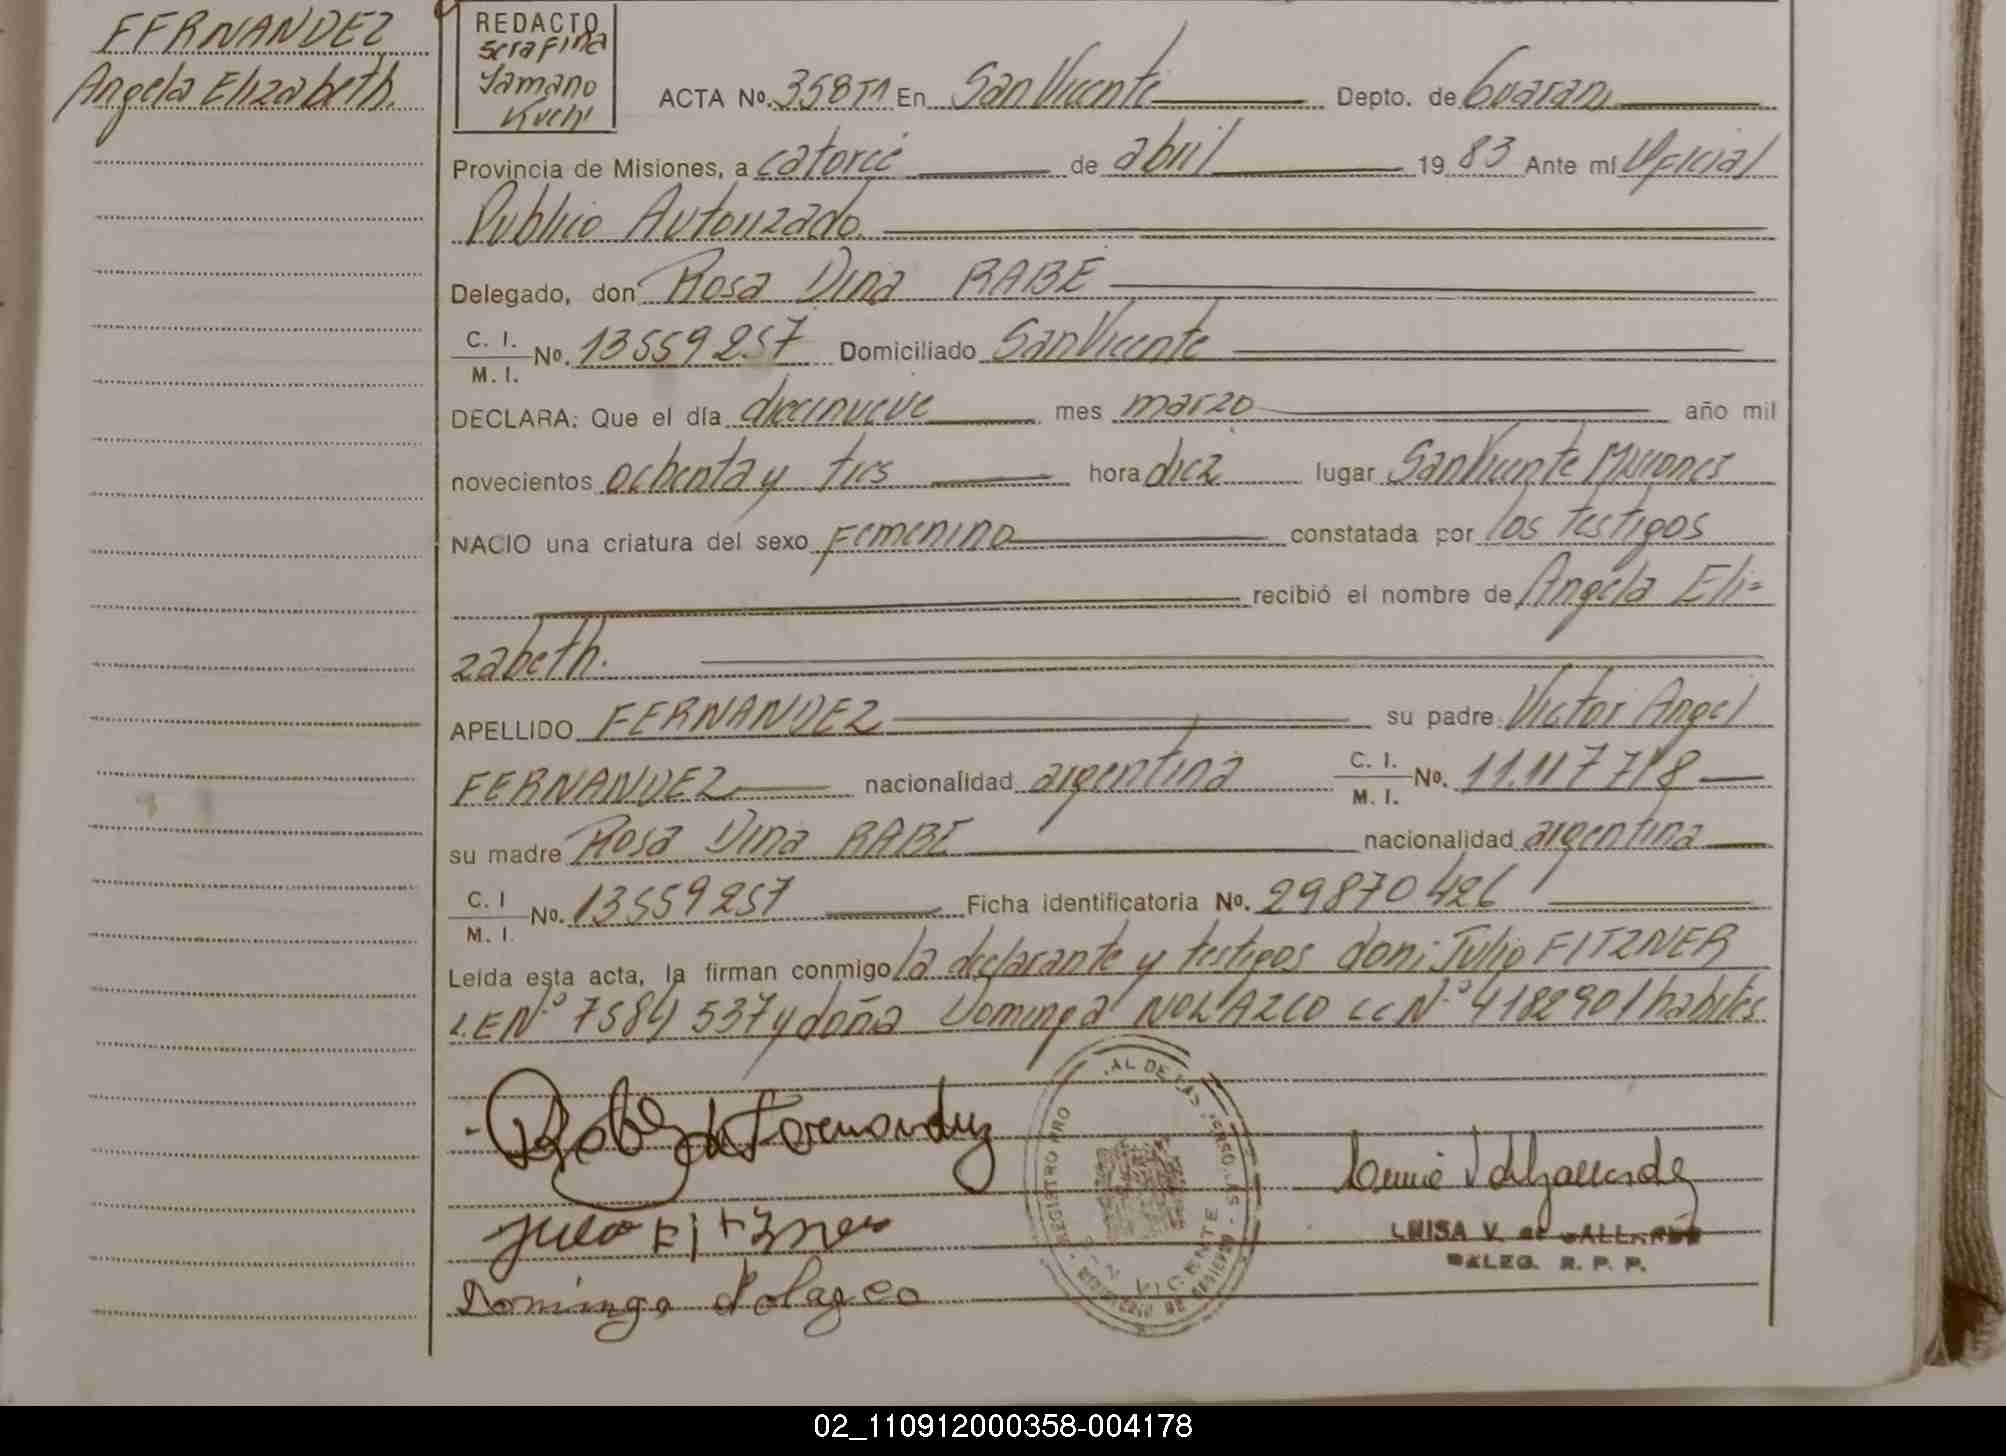 FERNANDEZ
Angela Elizabeth.
REDACTO
Serafina
Yamano
Kuchi
ACTA No. 358 T1 En San Vicente Depto. de Guarani
Provincia de Misiones, a catorce de abril 19 83 Ante mí Oficial
Publico Autorizado
Delegado, don Rosa Dina RABE
C. I. No. 13559257 Domiciliado San Vicente
M. I.
DECLARA: Que el día diecinueve mes marzo año mil
novecientos ochenta y tres hora diez lugar San Vicente Misiones
NACIO una criatura del sexo Femenino constatada por los testigos
recibió el nombre de Angela Eli=
zabeth.
APELLIDO FERNANDEZ su padre Victor Angel
FERNANDEZ nacionalidad argentina C. I. No. 11.117 718
M. I.
su madre Rosa Dina RABE nacionalidad argentina
C. I No. 13559257 Ficha identificatoria No. 29870426
M. I.
Leída esta acta, la firman conmigo la declarante y testigos don: Julio FITZNER
L.E Nº 7584 537 y doña Dominga NOLAZCO cc Nº 4182901 habiles
de Fernandez
REGISTRO PRO AL DE LAS PERSONAS
SAN VICENTE
MINISTERIO DE GOBIERNO
Julio Fitzner
LUISA V. de GALLARDO
DELEG. R. P. P.
Dominga Nolazco
02_110912000358-004178